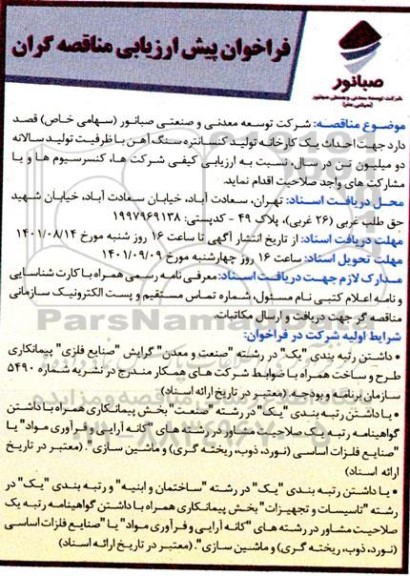 فراخوان پیش ارزیابی مناقصه گران
صبانور
شرکت توسعه معدنی و صنعتی صبانور
(سهامی خاص)
موضوع مناقصه: شرکت توسعه معدنی و صنعتی صبانور (سهامی خاص) قصد
دارد جهت احداث یک کارخانه تولید کنسانتره سنگ آهن با ظرفیت تولید سالانه
دو میلیون تن در سال، نسبت به ارزیابی کیفی شرکت ها، کنسرسیوم ها و یا
مشارکت های واجد صلاحیت اقدام نماید.
محل دریافت اسناد: تهران، سعادت آباد، خیابان سعادت آباد، خیابان شهید
حق طلب غربی (۲۶ غربی)، پلاک ۴۹ - کدپستی: ۱۹۹۷۹۶۹۱۳۸
مهلت دریافت اسناد: از تاریخ انتشار آگهی تا ساعت ۱۶ روز شنبه مورخ ۱۴۰۱/۰۸/۱۴
مهلت تحویل اسناد: ساعت ۱۶ روز چهارشنبه مورخ ۱۴۰۱/۰۹/۰۹
مدارک لازم جهت دریافت اسناد: معرفی نامه رسمی همراه با کارت شناسایی
و نامه اعلام کتبی نام مسئول، شماره تماس مستقیم و پست الکترونیک سازمانی
مناقصه گر جهت دریافت و ارسال مکاتبات.
شرایط اولیه شرکت در فراخوان:
• داشتن رتبه بندی "یک" در رشته "صنعت و معدن" گرایش "صنایع فلزی" پیمانکاری
طرح و ساخت همراه با ضوابط شرکت های همکار مندرج در نشریه شماره ۵۴۹۰
سازمان برنامه و بودجه (معتبر در تاریخ ارائه اسناد)
• یا داشتن رتبه بندی "یک" در رشته "صنعت" بخش پیمانکاری همراه با داشتن
گواهینامه رتبه یک صلاحیت مشاور در رشته های "کانه آرایی و فرآوری مواد" یا
"صنایع فلزات اساسی (نورد، ذوب، ریخته گری) و ماشین سازی". (معتبر در تاریخ
ارائه اسناد)
• یا داشتن رتبه بندی "یک" در رشته "ساختمان و ابنیه" و رتبه بندی "یک" در
رشته "تاسیسات و تجهیزات" بخش پیمانکاری همراه با داشتن گواهینامه رتبه یک
صلاحیت مشاور در رشته های "کانه آرایی و فرآوری مواد" یا "صنایع فلزات اساسی
(نورد، ذوب، ریخته گری) و ماشین سازی". (معتبر در تاریخ ارائه اسناد)
ParsNamadData
۰۲۱-۸۸۳۴۹۶۷۰-۵